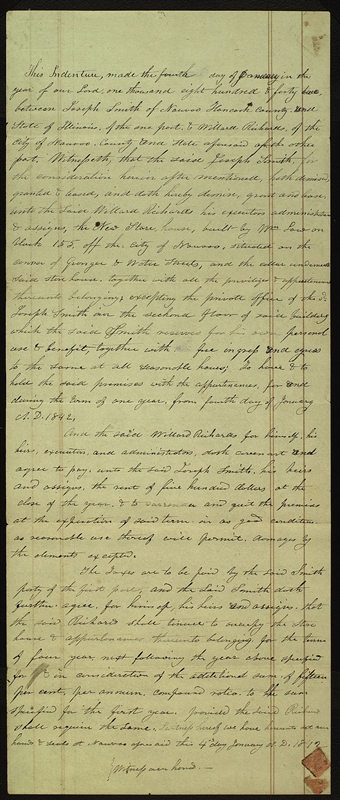 This Indenture, made the fourth day of January in the
year of our Lord, one thousand eight hundred & forty two,
between Joseph Smith of Nauvoo Hancock County. and
State of Illinois, of the one part, & Willard Richards, of the
City of Nauvoo. County and State aforesaid of the other
part, Witnesseth, that the said Joseph Smith, for
the consideration herein after mentioned, hath demised
granted & leased, and doth hereby demise, grant and lease
unto the said Willard Richards his executors administrators
& assigns, the New Store house, built by Wm Law on
Block 155, of the City of Nauvoo, situated on the
corner of Granger & Water Streets, and the cellar underneath
said store house, together with all the privileges & appurtenances
thereunto belonging; excepting the private office of the sd.
Joseph Smith on the second floor of said building
which the said Smith reserves for his own personal
use & benefit, together with free ingress and egress
to the same at all seasonable hours; To have & to
hold the said premises with the appurtenances, for and
during the term of one year, from fourth day of January
A.D. 1842,
And the said Willard Richards for himself, his
heirs, executors, and administrators, doth covenant and
agree to pay, unto the said Joseph Smith, his heirs
and assigns, the rent of five hundred dollars at the
close of the year, & to surrender and quit the premises
at the expiration of said term in as good condition,
as reasonable use thereof will permit, damages by
the elements excepted.
The taxes are to be paid by the said Smith
party of the first part, and the said Smith doth
further agree, for himself, his heirs and assigns, that
the said Richards shall continue to occupy the store
house & appurtenances thereunto belonging, for the term
of four years, next following the year above specified
for & in consideration of the additional sum, of fifteen
per cent, per annum, compound ratio, to the sum
specified for the first year. provided the said Richards
shall require the same. In testimony whereof we have hereunto set our
hands & seals at Nauvoo aforesaid this 4th day January A.D. 1842
Witness our hand.